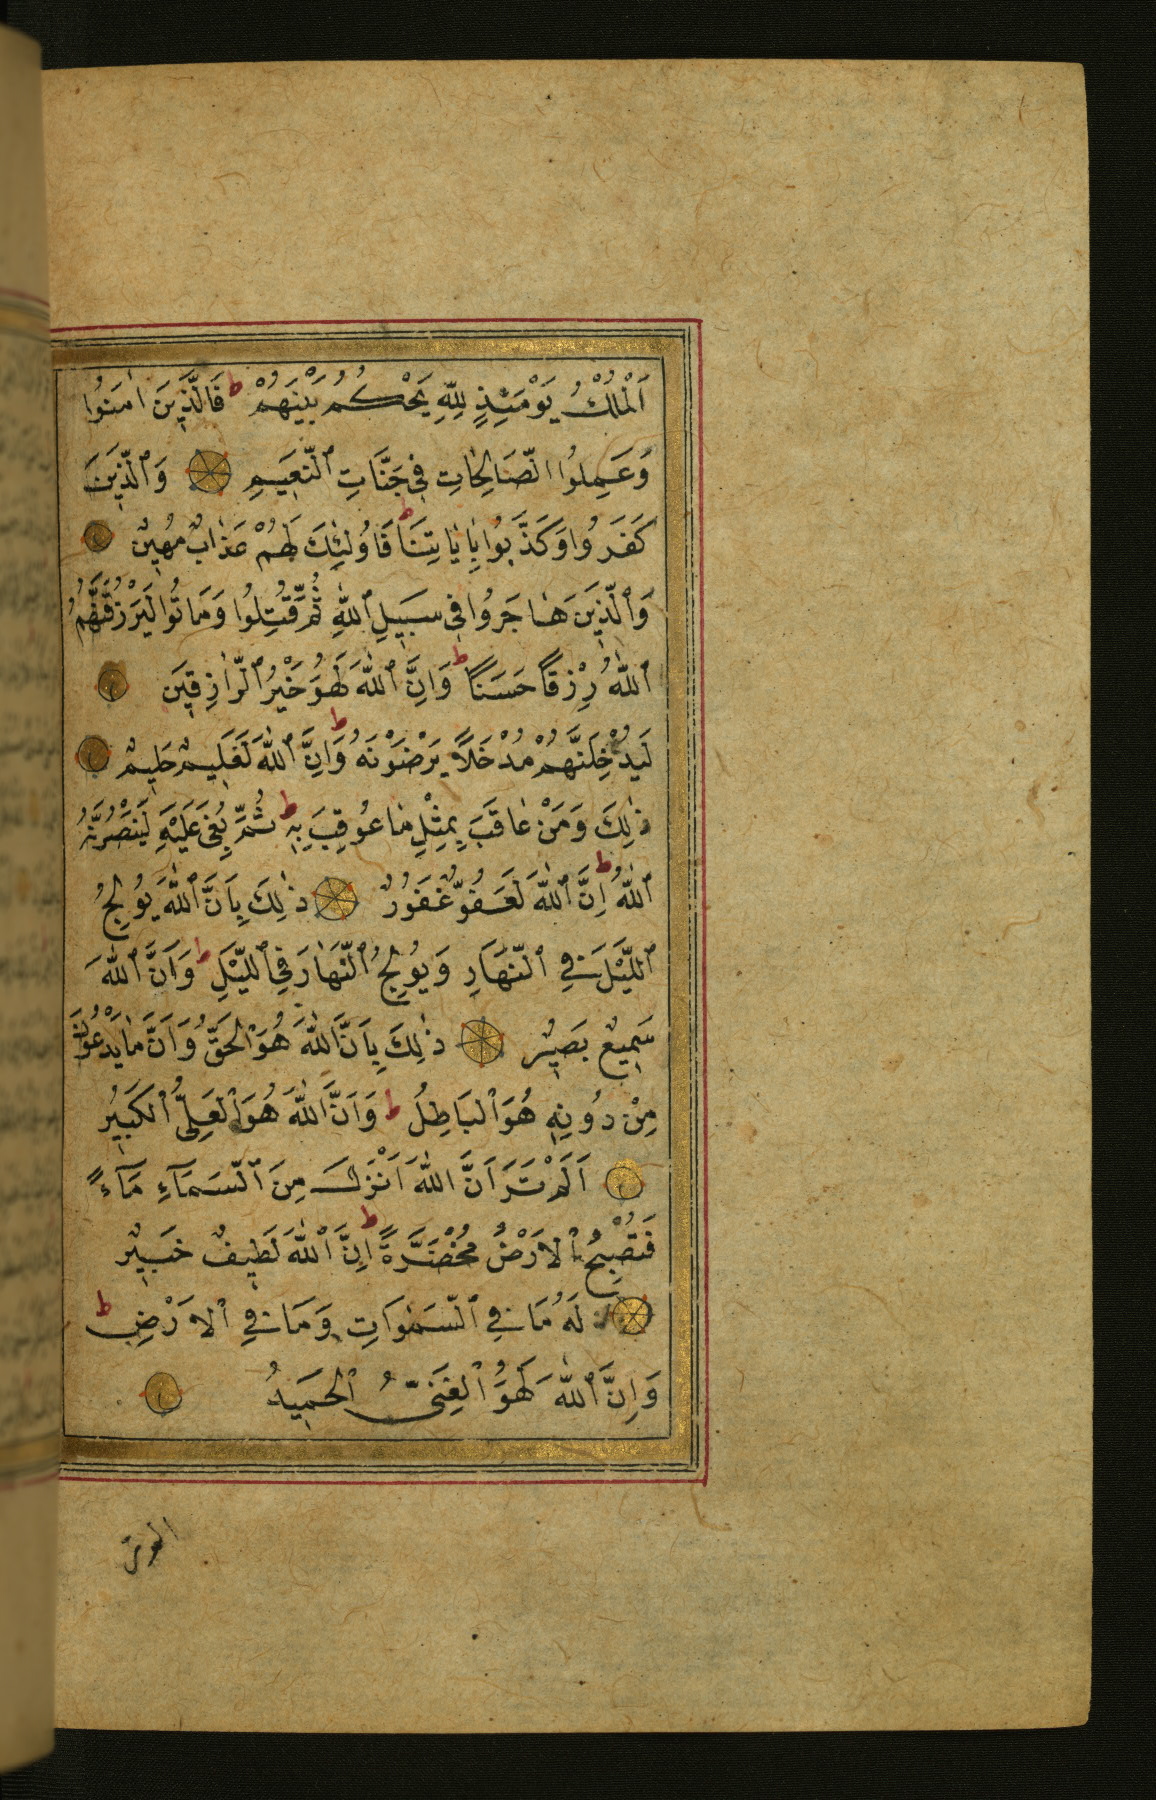 اَلْمُلْكُ يَوْمَئِذٍ لِلّٰهِ يَحْكُمُ بَيْنَهُمْ ط فَالَّذِينَ اٰمَنُوا
وَعَمِلُوا الصَّالِحَاتِ فِي جَنَّاتِ ٱلنَّعِيمِ وَٱلَّذِينَ
كَفَرُوا وَكَذَّبُوا بِاٰيَاتِنَا فَاُولٰئِكَ لَهُمْ عَذَابٌ مُهِينٌ
وَٱلَّذِينَ هَاجَرُوا فِي سَبِيلِ ٱللّٰهِ ثُمَّ قُتِلُوا وَمَاتُوا لَيَرْزُقَنَّهُمُ
ٱللّٰهُ رِزْقًا حَسَنًا ط وَاِنَّ ٱللّٰهَ لَهُوَ خَيْرُ ٱلرَّازِقِينَ
لَيُدْخِلَنَّهُمْ مُدْخَلًا يَرْضَوْنَهُ ط وَاِنَّ ٱللّٰهَ لَعَلِيمٌ حَلِيمٌ
ذٰلِكَ وَمَنْ عَاقَبَ بِمِثْلِ مَا عُوقِبَ بِهِ ط ثُمَّ بُغِيَ عَلَيْهِ لَيَنْصُرَنَّهُ
ٱللّٰهُ ط اِنَّ ٱللّٰهَ لَعَفُوٌّ غَفُورٌ ذٰلِكَ بِاَنَّ ٱللّٰهَ يُولِجُ
ٱللَّيْلَ فِي ٱلنَّهَارِ وَيُولِجُ ٱلنَّهَارَ فِي ٱللَّيْلِ ط وَاَنَّ ٱللّٰهَ
سَمِيعٌ بَصِيرٌ ذٰلِكَ بِاَنَّ ٱللّٰهَ هُوَ ٱلْحَقُّ وَاَنَّ مَا يَدْعُونَ
مِنْ دُونِهِ هُوَ ٱلْبَاطِلُ ط وَاَنَّ ٱللّٰهَ هُوَ ٱلْعَلِيُّ ٱلْكَبِيرُ
اَلَمْ تَرَ اَنَّ اللّٰهَ اَنْزَلَ مِنَ ٱلسَّمَآءِ مَآءً
فَتُصْبِحُ ٱلْاَرْضُ مُخْضَرَّةً ط اِنَّ ٱللّٰهَ لَطِيفٌ خَبِيرٌ
لَهُ مَا فِي ٱلسَّمٰوَاتِ وَمَا فِي ٱلْاَرْضِ ط
وَاِنَّ ٱللّٰهَ لَهُوَ ٱلْغَنِيُّ ٱلْحَمِيدُ
الم تر